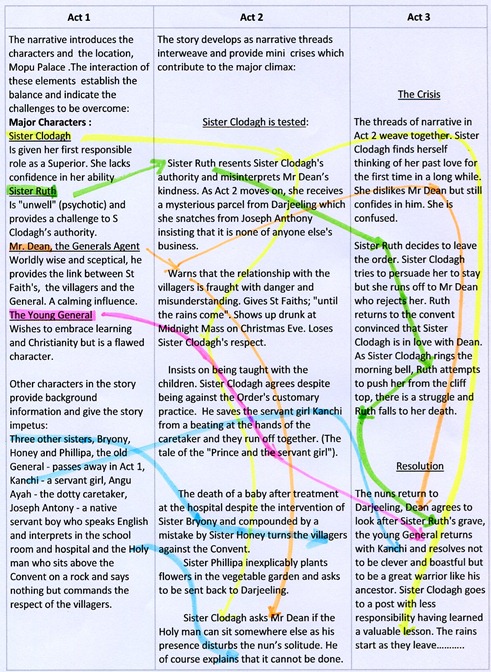 Act 1
Act 2
Act 3
The narrative introduces the
characters and the location,
Mopu Palace .The interaction of
these elements establish the
balance and indicate the
challenges to be overcome:
Major Characters :
Sister Clodagh
Is given her first responsible
role as a Superior. She lacks
confidence in her ability
Sister Ruth
Is "unwell" (psychotic) and
provides a challenge to S
Clodagh's authority.
Mr. Dean, the Generals Agent
Worldly wise and sceptical, he
provides the link between St
Faith's, the villagers and the
General. A calming influence.
The Young General
Wishes to embrace learning
and Christianity but is a flawed
character.
Other characters in the story
provide background
information and give the story
impetus:
Three other sisters, Bryony,
Honey and Phillipa, the old
General - passes away in Act 1,
Kanchi - a servant girl, Angu
Ayah - the dotty caretaker,
Joseph Antony - a native
servant boy who speaks English
and interprets in the school
room and hospital and the Holy
man who sits above the
Convent on a rock and says
nothing but commands the
respect of the villagers.
The story develops as narrative threads
interweave and provide mini crises which
contribute to the major climax:
Sister Clodagh is tested:
Sister Ruth resents Sister Clodagh's
authority and misinterprets Mr Dean's
kindness. As Act 2 moves on, she receives
a mysterious parcel from Darjeeling which
she snatches from Joseph Anthony
insisting that it is none of anyone else's
business.
Warns that the relationship with the
villagers is fraught with danger and
misunderstanding. Gives St Faiths; "until
the rains come". Shows up drunk at
Midnight Mass on Christmas Eve. Loses
Sister Clodagh's respect.
Insists on being taught with the
children. Sister Clodagh agrees despite
being against the Order's customary
practice. He saves the servant girl Kanchi
from a beating at the hands of the
caretaker and they run off together. (The
tale of the "Prince and the servant girl").
The death of a baby after treatment
at the hospital despite the intervention of
Sister Bryony and compounded by a
mistake by Sister Honey turns the villagers
against the Convent.
Sister Philippa inexplicably plants
flowers in the vegetable garden and asks
to be sent back to Darjeeling.
Sister Clodagh asks Mr Dean if the
Holy man can sit somewhere else as his
presence disturbs the nun's solitude. He
of course explains that it cannot be done.
The Crisis
The threads of narrative in
Act 2 weave together. Sister
Clodagh finds herself
thinking of her past love for
the first time in a long while.
She dislikes Mr Dean but still
confides in him. She is
confused.
Sister Ruth decides to leave
the order. Sister Clodagh
tries to persuade her to stay
but she runs off to Mr Dean
who rejects her. Ruth
returns to the convent
convinced that Sister
Clodagh is in love with Dean.
As Sister Clodagh rings the
morning bell, Ruth attempts
to push her from the cliff
top, there is a struggle and
Ruth falls to her death.
Resolution
The nuns return to
Darjeeling, Dean agrees to
look after Sister Ruth's grave,
the young General returns
with Kanchi and resolves not
to be clever and boastful but
to be a great warrior like his
ancestor. Sister Clodagh goes
to a post with less
responsibility having learned
a valuable lesson. The rains
start as they leave...........